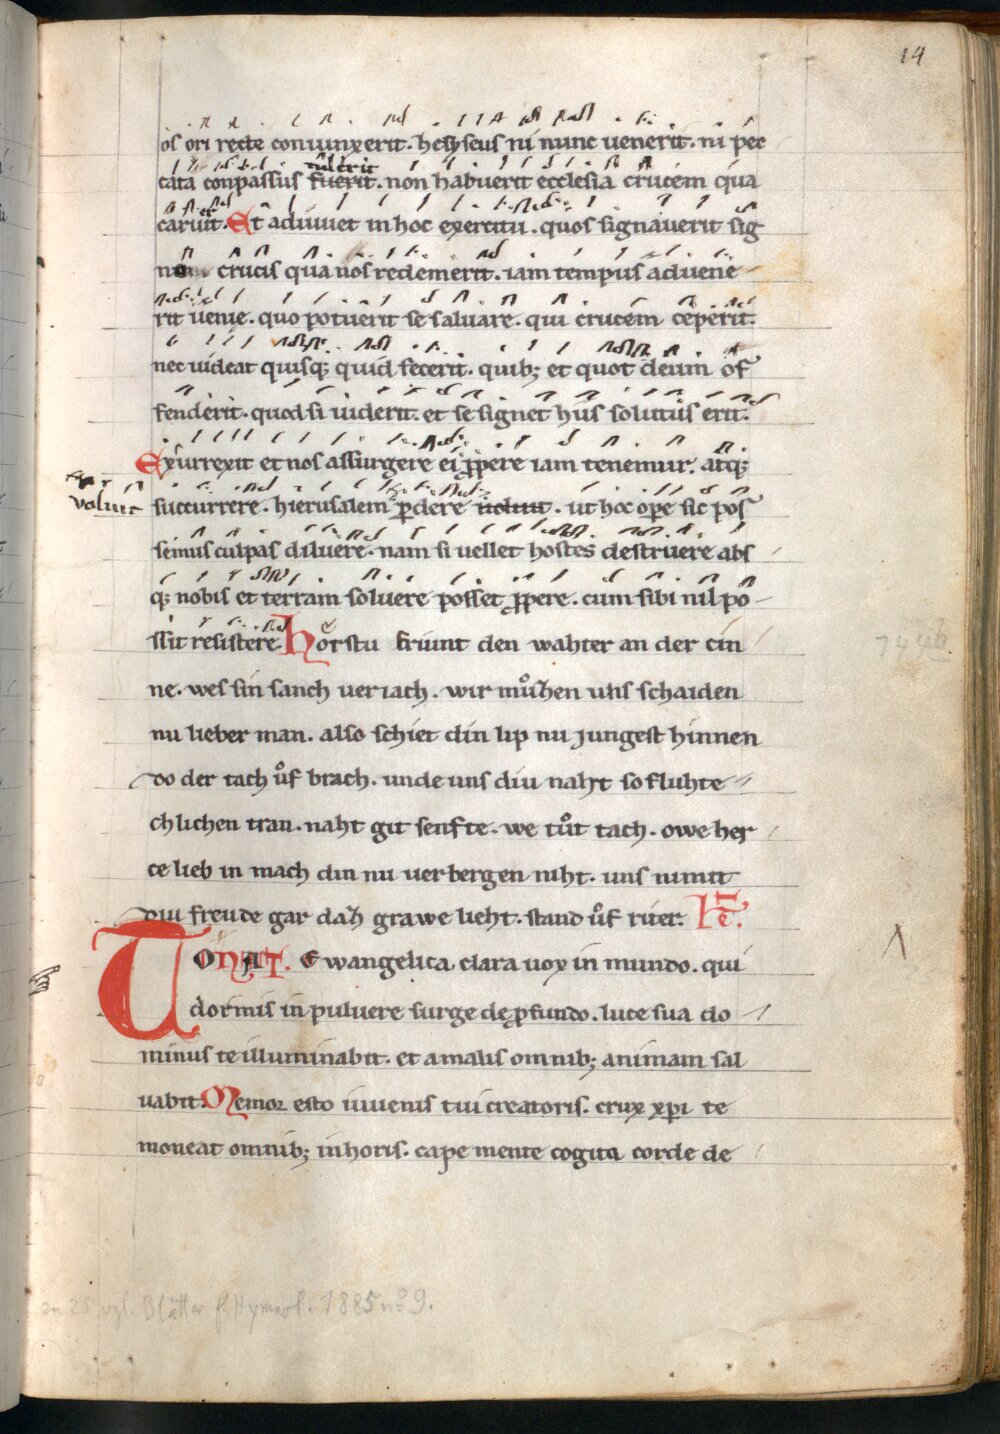 14
os ori recte coniunxerit. helyseus ni nunc uenerit. ni pec
tulerit
cata conpassus fuerit. non habuerit ecclesia crucem qua
caruit. Et adiuuet in hoc exercitu. quos signauerit sig
num crucis qua nos redemerit. iam tempus aduene
rit uenie. quo potuerit se saluare. qui crucem ceperit.
nec uideat quisq; quid fecerit. quib; et quot deum of
fenderit. quod si uiderit. et se signet hiis solutus erit.
Exurrexit et nos assurgere ei ꝓpere iam tenemur. atq;
voluit
succurrere. hierusalem ꝑdere uoluit. ut hoc ope sic pos
semus culpas diluere. nam si uellet hostes destruere abs
q; nobis et terram soluere posset ꝓpere. cum sibi nil po
ssit resistere. Horstu friunt den wahter an der cin
ne. wes sin sanch ueriach. wir muͦzhen uns schaiden
nu lieber man. also schiet din lip nu jungest hinnen
do der tach uͦf brach. unde uns diu naht so fluhte
chlichen tran. naht git senfte. we tuͦt tach. owe her
ce lieb in mach din nu uerbergen niht. uns nimit
diu freude gar daz grawe lieht. stand uͦf riter.
VONAT. Ewangelica. clara uox in mundo. qui
dormis in puluere surge de ꝓfundo. luce sua do
minus te illuminabit. et a malis omnib; animam sal
uabit. Memor esto iuuenis tui creatoris. crux xp̅i te
moneat omnib; in horis. cape mente cogita corde de
744b
vgl. Blätter f. Hymnol. 1885 no 9.